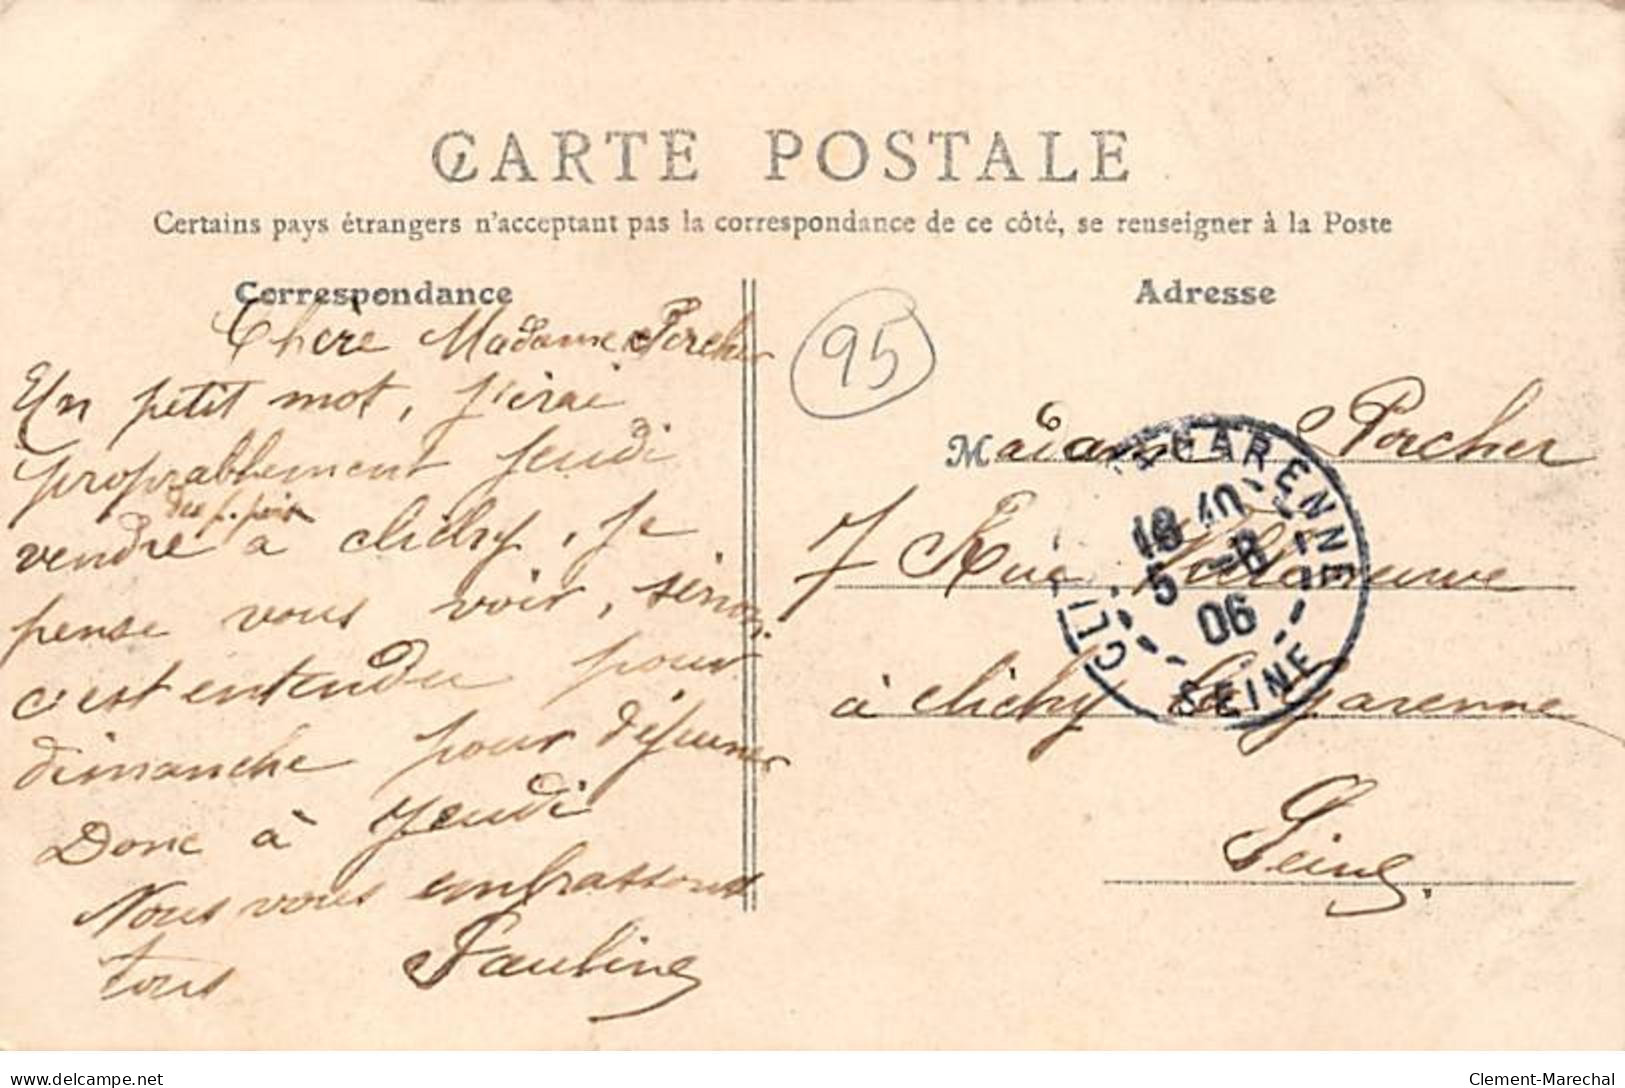 CARTE POSTALE
Certains pays étrangers n'acceptant pas la correspondance de ce côté, se renseigner à la Poste
Correspondance
Chère Madame Porcher
Un petit mot, j'irai
proprablement jeudi
des p. pois
vendre à clichy, je
pense vous voir, sinon
c'est entendu pour
dimanche pour déjeuner
Donc à Jeudi
Nous vous embrassons
tous Pauline
95
Adresse
Madame Porcher
7 Rue Villeneuve
à clichy la Garenne
Seine.
CLICHY LA GARENNE
18 40
5 -8
06
SEINE
delcampe.net
Clement-Marechal